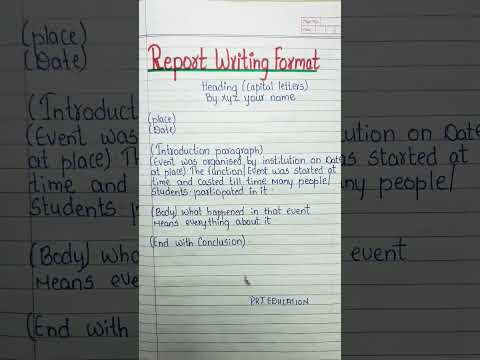 Report Writing Format
Heading (capital letters)
By xyz your name
(place)
(Date)
(Introduction paragraph)
(Event was organised by institution on Date
at place) The function/ Event was started at
time and Casted till time Many people/
Students participated in it
(Body) what happened in that event
Means everything about it
(End with Conclusion)
PRT EDUCATION
(place)
(Date)
(Introduct
(Event was
at place)
time and
Students
(Body) what
Means eve
(End with
itution on Date
was started at
any people/
event